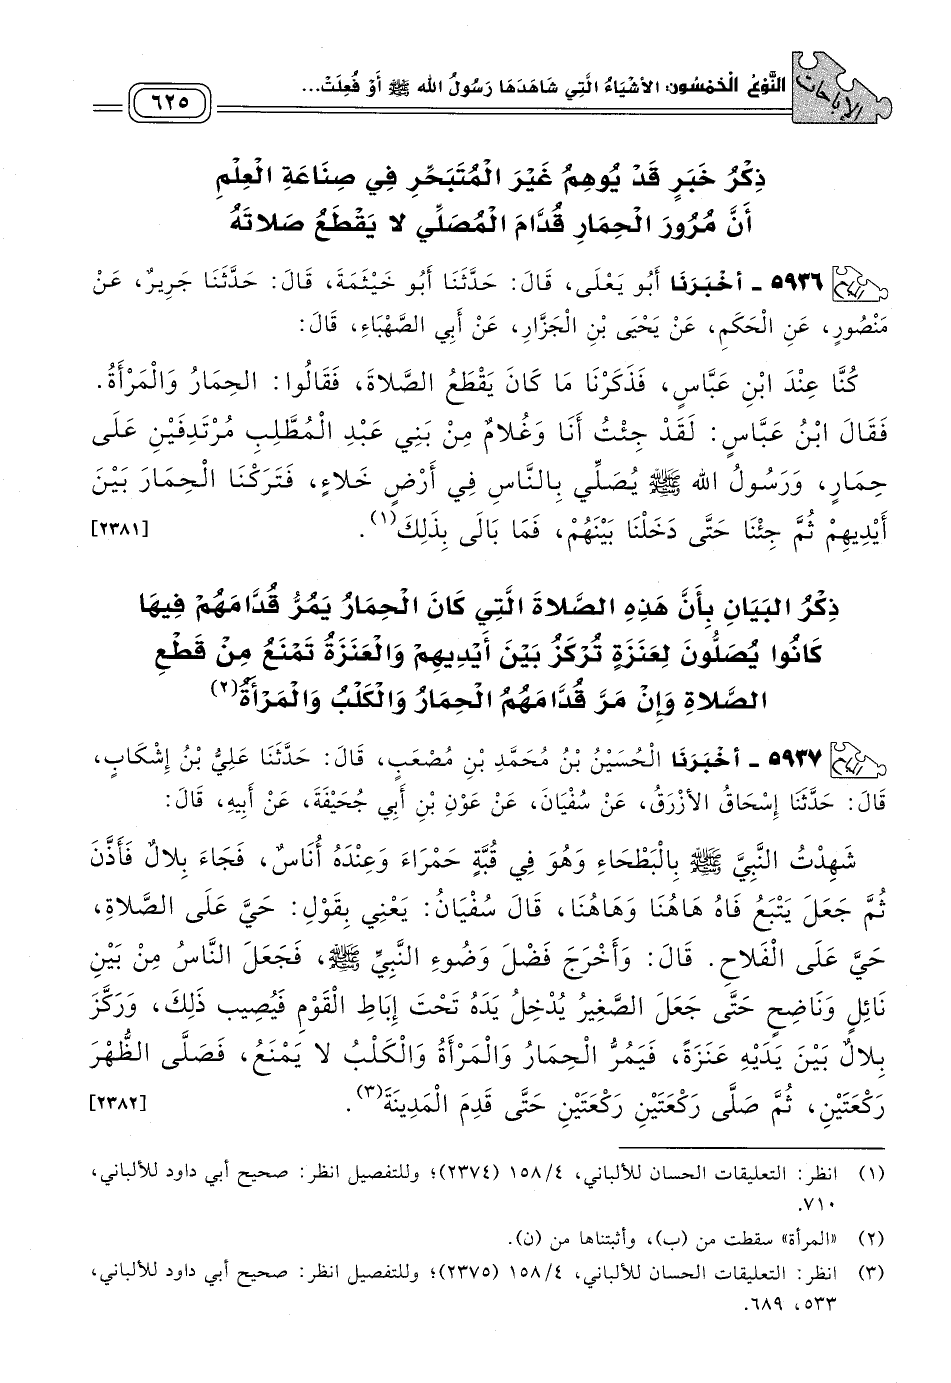 الإباحات
النَّوْعُ الْخَمْسُون: الأَشْيَاءُ الَّتِي شَاهَدَهَا رَسُولُ اللهِ ﷺ أَوْ فُعِلَتْ...
٦٢٥
ذِكْرُ خَبَرٍ قَدْ يُوهِمُ غَيْرَ الْمُتَبَحِّرِ فِي صِنَاعَةِ الْعِلْمِ
أَنَّ مُرُورَ الْحِمَارِ قُدَّامَ الْمُصَلِّي لا يَقْطَعُ صَلاتَهُ
٥٩٣٦ ـ أَخْبَرَنَا أَبُو يَعْلَى، قَالَ: حَدَّثَنَا أَبُو خَيْثَمَةَ، قَالَ: حَدَّثَنَا جَرِيرٌ، عَنْ
مَنْصُورٍ، عَنِ الْحَكَمِ، عَنْ يَحْيَى بْنِ الْجَزَّارِ، عَنْ أَبِي الصَّهْبَاءِ، قَالَ:
كُنَّا عِنْدَ ابْنِ عَبَّاسٍ، فَذَكَرْنَا مَا كَانَ يَقْطَعُ الصَّلاةَ، فَقَالُوا: الحِمَارُ وَالْمَرْأَةُ.
فَقَالَ ابْنُ عَبَّاسٍ: لَقَدْ جِئْتُ أَنَا وَغُلامٌ مِنْ بَنِي عَبْدِ الْمُطَّلِبِ مُرْتَدِفَيْنِ عَلَى
حِمَارٍ، وَرَسُولُ اللهِ ﷺ يُصَلِّي بِالنَّاسِ فِي أَرْضٍ خَلاءٍ، فَتَرَكْنَا الْحِمَارَ بَيْنَ
أَيْدِيهِمْ ثُمَّ جِئْنَا حَتَّى دَخَلْنَا بَيْنَهُمْ، فَمَا بَالَى بِذَلِكَ(١). [٢٣٨١]
ذِكْرُ الْبَيَانِ بِأَنَّ هَذِهِ الصَّلاةَ الَّتِي كَانَ الْحِمَارُ يَمُرُّ قُدَّامَهُمْ فِيهَا
كَانُوا يُصَلُّونَ لِعَنَزَةٍ تُرْكَزُ بَيْنَ أَيْدِيهِمْ وَالْعَنَزَةُ تَمْنَعُ مِنْ قَطْعِ
الصَّلاةِ وَإِنْ مَرَّ قُدَّامَهُمُ الْحِمَارُ وَالْكَلْبُ وَالْمَرْأَةُ(٢)
٥٩٣٧ ـ أَخْبَرَنَا الْحُسَيْنُ بْنُ مُحَمَّدِ بْنِ مُصْعَبٍ، قَالَ: حَدَّثَنَا عَلِيُّ بْنُ إِشْكَابٍ،
قَالَ: حَدَّثَنَا إِسْحَاقُ الأَزْرَقُ، عَنْ سُفْيَانَ، عَنْ عَوْنِ بْنِ أَبِي جُحَيْفَةَ، عَنْ أَبِيهِ، قَالَ:
شَهِدْتُ النَّبِيَّ ﷺ بِالْبَطْحَاءِ وَهُوَ فِي قُبَّةٍ حَمْرَاءَ وَعِنْدَهُ أُنَاسٌ، فَجَاءَ بِلالٌ فَأَذَّنَ
ثُمَّ جَعَلَ يَتْبَعُ فَاهُ هَاهُنَا وَهَاهُنَا، قَالَ سُفْيَانُ: يَعْنِي بِقَوْلِ: حَيَّ عَلَى الصَّلاةِ،
حَيَّ عَلَى الْفَلاحِ. قَالَ: وَأَخْرَجَ فَضْلَ وَضُوءِ النَّبِيِّ ﷺ، فَجَعَلَ النَّاسُ مِنْ بَيْنِ
نَائِلٍ وَنَاضِحٍ حَتَّى جَعَلَ الصَّغِيرُ يُدْخِلُ يَدَهُ تَحْتَ إِبَاطِ الْقَوْمِ فَيُصِيب ذَلِكَ، وَرَكَّزَ
بِلالٌ بَيْنَ يَدَيْهِ عَنَزَةً، فَيَمُرُّ الْحِمَارُ وَالْمَرْأَةُ وَالْكَلْبُ لا يَمْنَعُ، فَصَلَّى الظُّهْرَ
رَكْعَتَيْنِ، ثُمَّ صَلَّى رَكْعَتَيْنِ رَكْعَتَيْنِ حَتَّى قَدِمَ الْمَدِينَةَ(٣). [٢٣٨٢]
(١) انظر: التعليقات الحسان للألباني، ١٥٨/٤ (٢٣٧٤)؛ وللتفصيل انظر: صحيح أبي داود للألباني،
٧١٠.
(٢) «المرأة» سقطت من (ب)، وأثبتناها من (ن).
(٣) انظر: التعليقات الحسان للألباني، ١٥٨/٤ (٢٣٧٥)؛ وللتفصيل انظر: صحيح أبي داود للألباني،
٥٣٣، ٦٨٩.